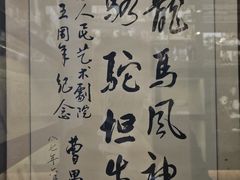 龍馬風神
駱駝坦步
人民艺术劇院
五周年纪念
曹禺
八七年六